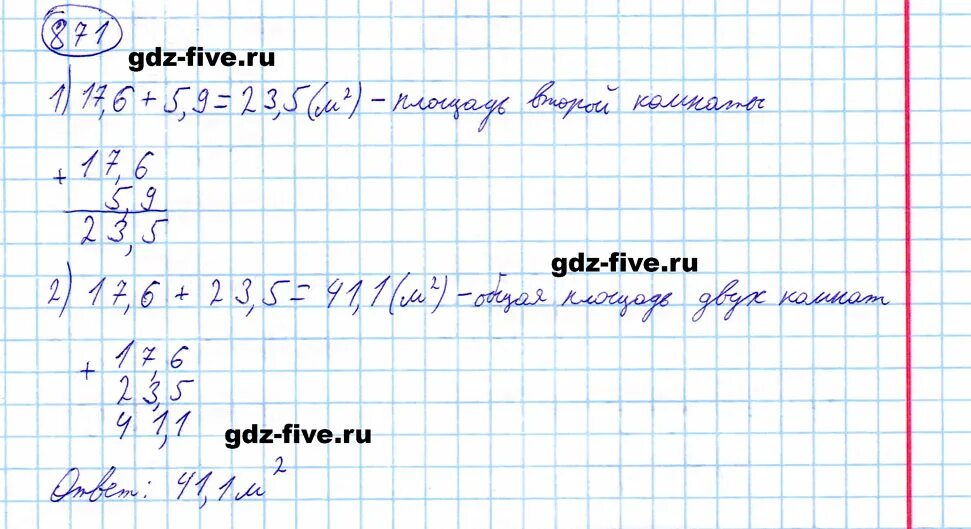 871
gdz-five.ru
1) 17,6 + 5,9 = 23,5 (м²) – площадь второй комнаты
+ 17,6
5,9
23,5
gdz-five.ru
2) 17,6 + 23,5 = 41,1 (м²) – общая площадь двух комнат
+ 17,6
23,5
41,1
gdz-five.ru
Ответ: 41,1 м²